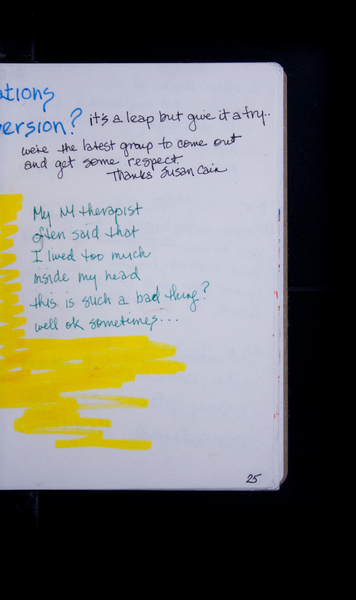 ations
ersion? it's a leap but give it a try..
we're the latest group to come out
and get some respect.
Thanks Susan Cain
My NY therapist
often said that
I lived too much
inside my head
this is such a bad thing?
well ok sometimes...
25